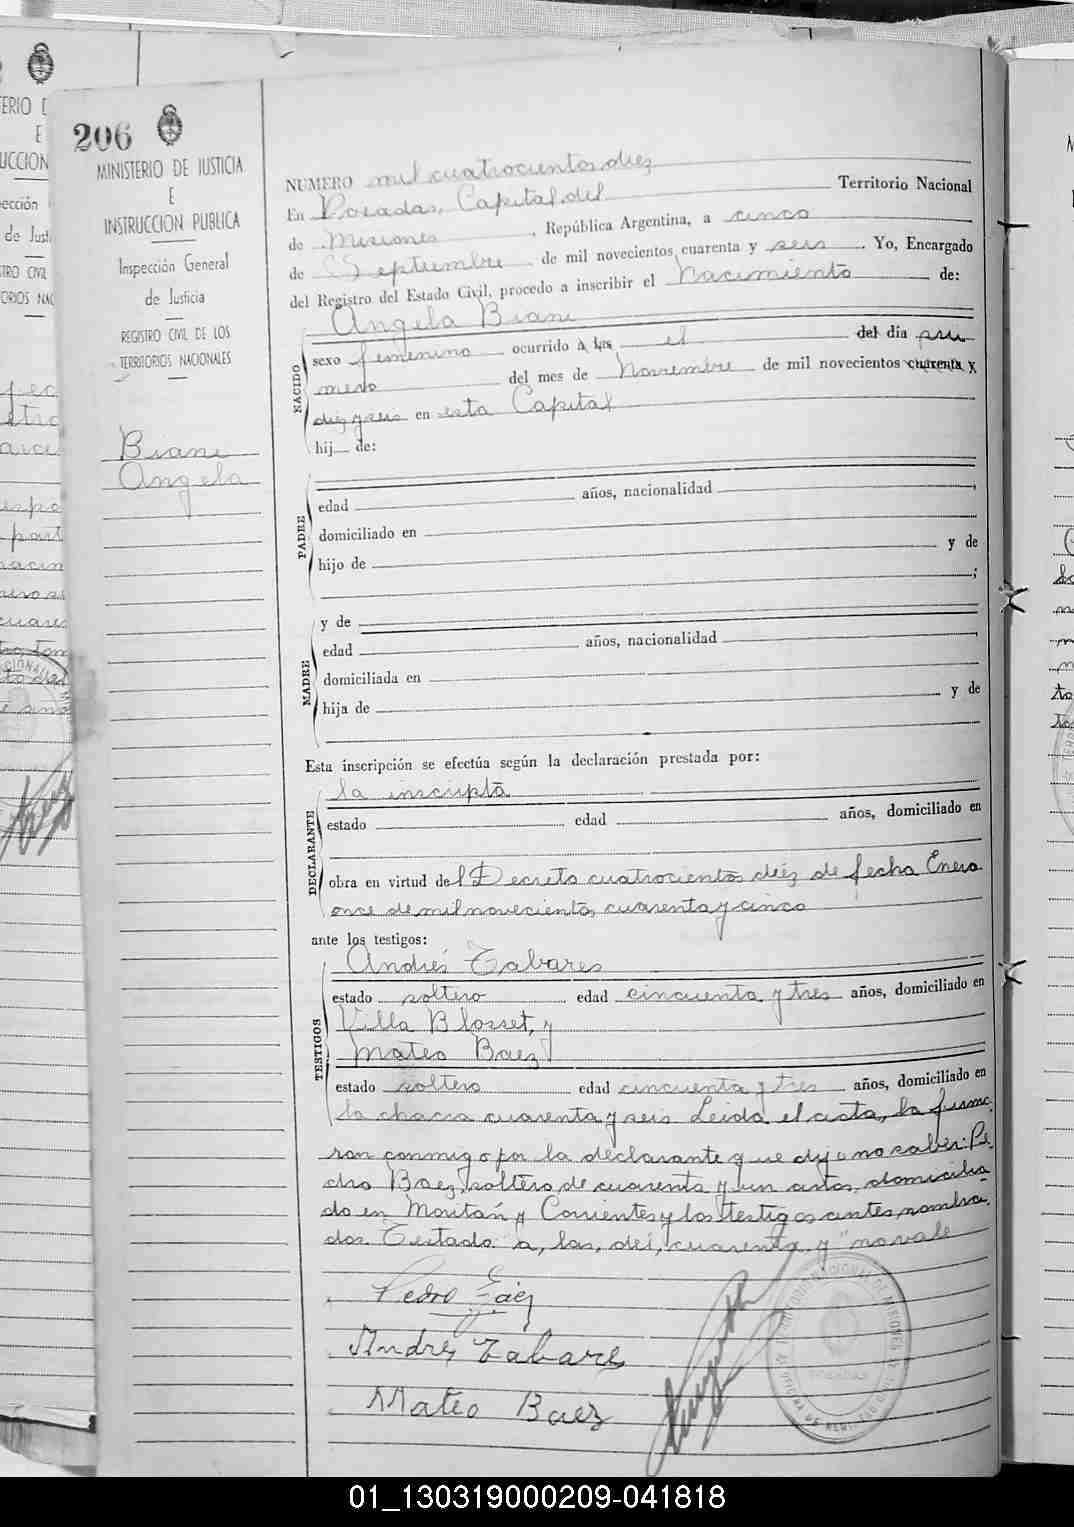 206
MINISTERIO DE JUSTICIA
E
INSTRUCCION PUBLICA
Inspección General
de Justicia
REGISTRO CIVIL DE LOS
TERRITORIOS NACIONALES
Biani
Angela
NUMERO mil cuatrocientos diez
En Posadas, Capital del Territorio Nacional
de Misiones, República Argentina, a cinco
de Septiembre de mil novecientos cuarenta y seis. Yo, Encargado
del Registro del Estado Civil, procedo a inscribir el nacimiento de:
Angela Biani
NACIDO
sexo femenino ocurrido a las el del día pri
mero del mes de Noviembre de mil novecientos cuarenta y
diez y seis en esta Capital
hij de:
PADRE
edad años, nacionalidad
domiciliado en
hijo de y de
;
MADRE
y de
edad años, nacionalidad
domiciliada en
hija de y de
Esta inscripción se efectúa según la declaración prestada por:
DECLARANTE
la inscripta
estado edad años, domiciliado en
obra en virtud del Decreto cuatrocientos diez de fecha Enero
once de mil novecientos cuarenta y cinco
ante los testigos:
TESTIGOS
Andrés Tabares
estado soltero edad cincuenta y tres años, domiciliado en
Villa Blosset, y
Mateo Baez
estado soltero edad cincuenta y tres años, domiciliado en
la chacra cuarenta y seis Leida el acta, la firma
ron conmigo por la declarante que dijo no saber: Pe
dro Baez, soltero de cuarenta y un años, domicilia
do en Moritán y Corrientes y los testigos antes nombra
dos. Testado: a, las, del, cuarenta y "no vale
Pedro Báez
Andres Tabares
Mateo Baez
01_130319000209-041818